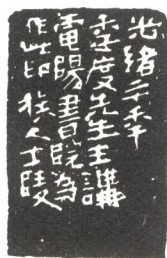 光緒二十年
季度先生主講
電陽書院為
作此印族人士陵